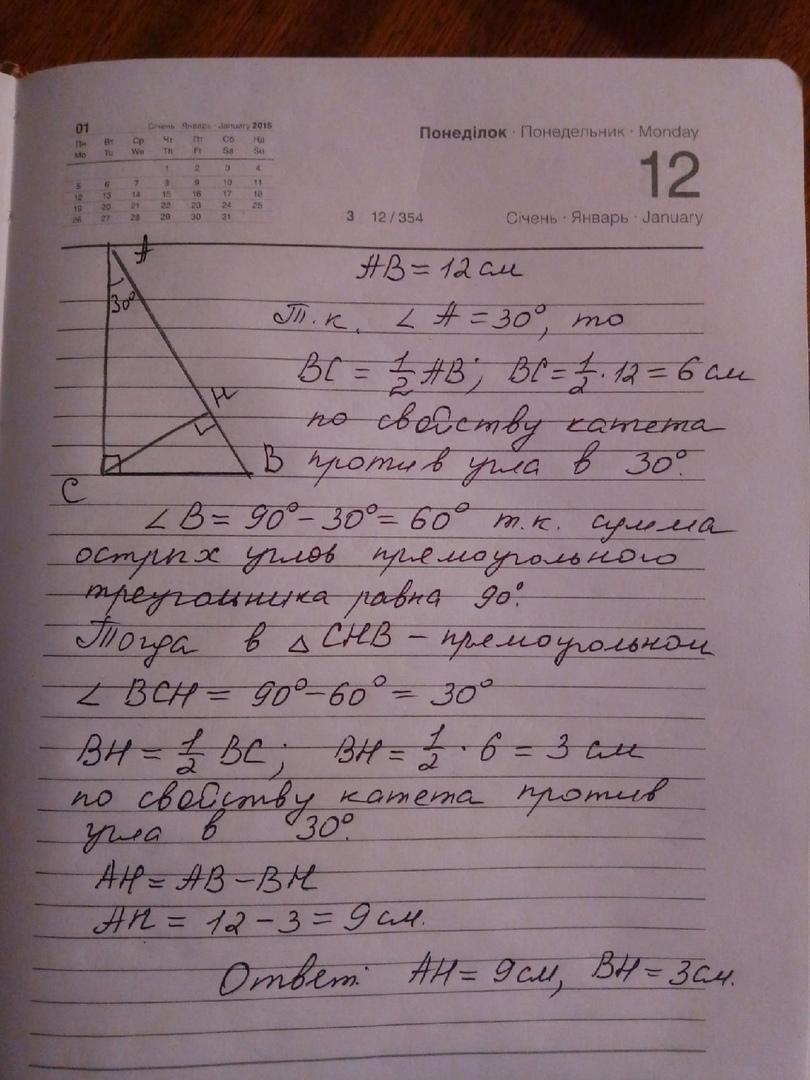 01 Січень · Январь · January 2015
Пн Вт Ср Чт Пт Сб Нд
Mo Tu We Th Fr Sa Su
1 2 3 4
5 6 7 8 9 10 11
12 13 14 15 16 17 18
19 20 21 22 23 24 25
26 27 28 29 30 31
Понеділок · Понедельник · Monday
12
3 12 / 354
Січень · Январь · January
A
30°
H
B
C
AB = 12 см
Т.к. ∠ A = 30°, то
BC = 1/2 AB; BC = 1/2 · 12 = 6 см
по свойству катета
против угла в 30°.
∠ B = 90° – 30° = 60° т.к. сумма
острых углов прямоугольного
треугольника равна 90°.
Тогда в △ CHB – прямоугольном
∠ BCH = 90° – 60° = 30°
BH = 1/2 BC; BH = 1/2 · 6 = 3 см
по свойству катета против
угла в 30°.
AH = AB – BH
AH = 12 – 3 = 9 см.
Ответ: AH = 9 см, BH = 3 см.